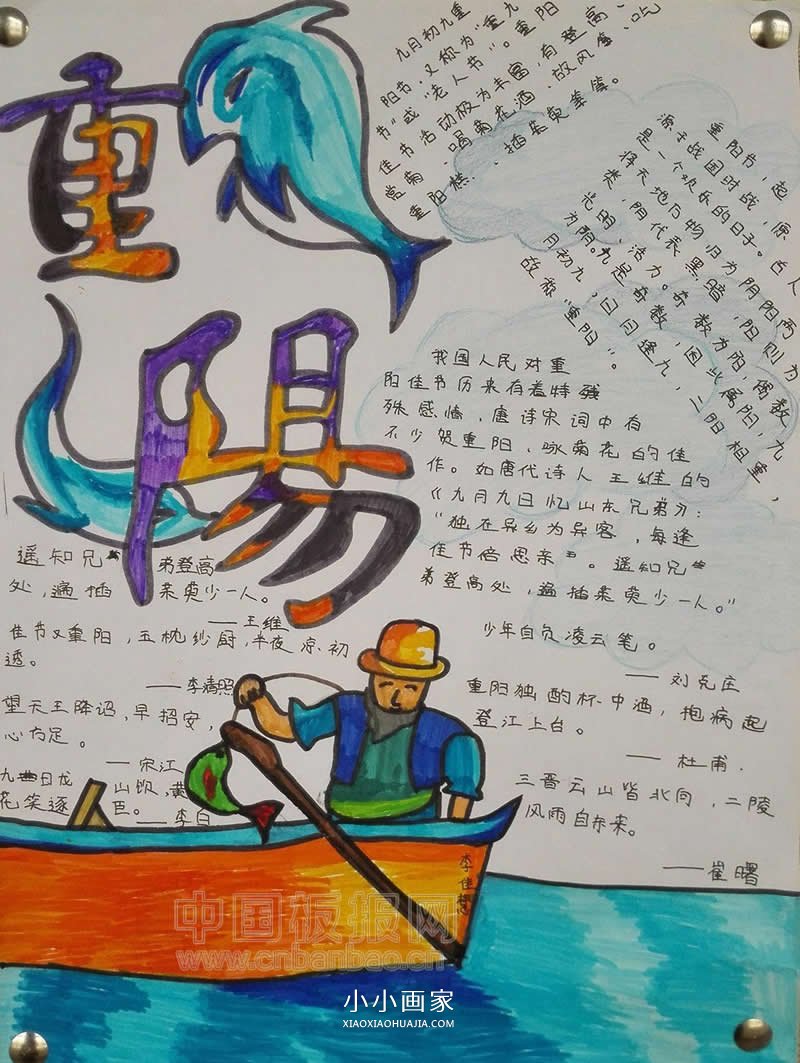 重陽
九月初九重
阳节,又称为"重九
节"或"老人节"。重阳
佳节活动极为丰富,有登高、
赏菊、喝菊花酒、放风筝、吃
重阳糕、插茱萸等等。
重阳节,起
源于战国时战,原
是一个欢乐的日子。古人
将天地万物归为阴阳两
类,阴代表黑暗,阳则为
光明、活力。奇数为阳,偶数
为阴。九是奇数,因此属阳,九
月初九,日月逢九,二阳相重,
故称"重阳"。
我国人民对重
阳佳节历来有着特殊
殊感情,唐诗宋词中有
不少贺重阳、咏菊花的佳
作。如唐代诗人王维的
《九月九日忆山东兄弟》:
"独在异乡为异客,每逢
佳节倍思亲。遥知兄
弟登高处,遍插茱萸少一人。"
遥知兄弟登高
处,遍插茱萸少一人。
——王维
佳节又重阳,玉枕纱厨,半夜凉初
透。
——李清照
望天王降诏,早招安,
心方足。
——宋江
九日龙山饮,黄
花笑逐臣。——李白
少年自负凌云笔。
——刘克庄
重阳独酌杯中酒,抱病起
登江上台。
——杜甫.
三晋云山皆北向,二陵
风雨自东来。
——崔曙
李佳
中国板报网
www.cnbanbao.cn
小小画家
XIAOXIAOHUAJIA.COM